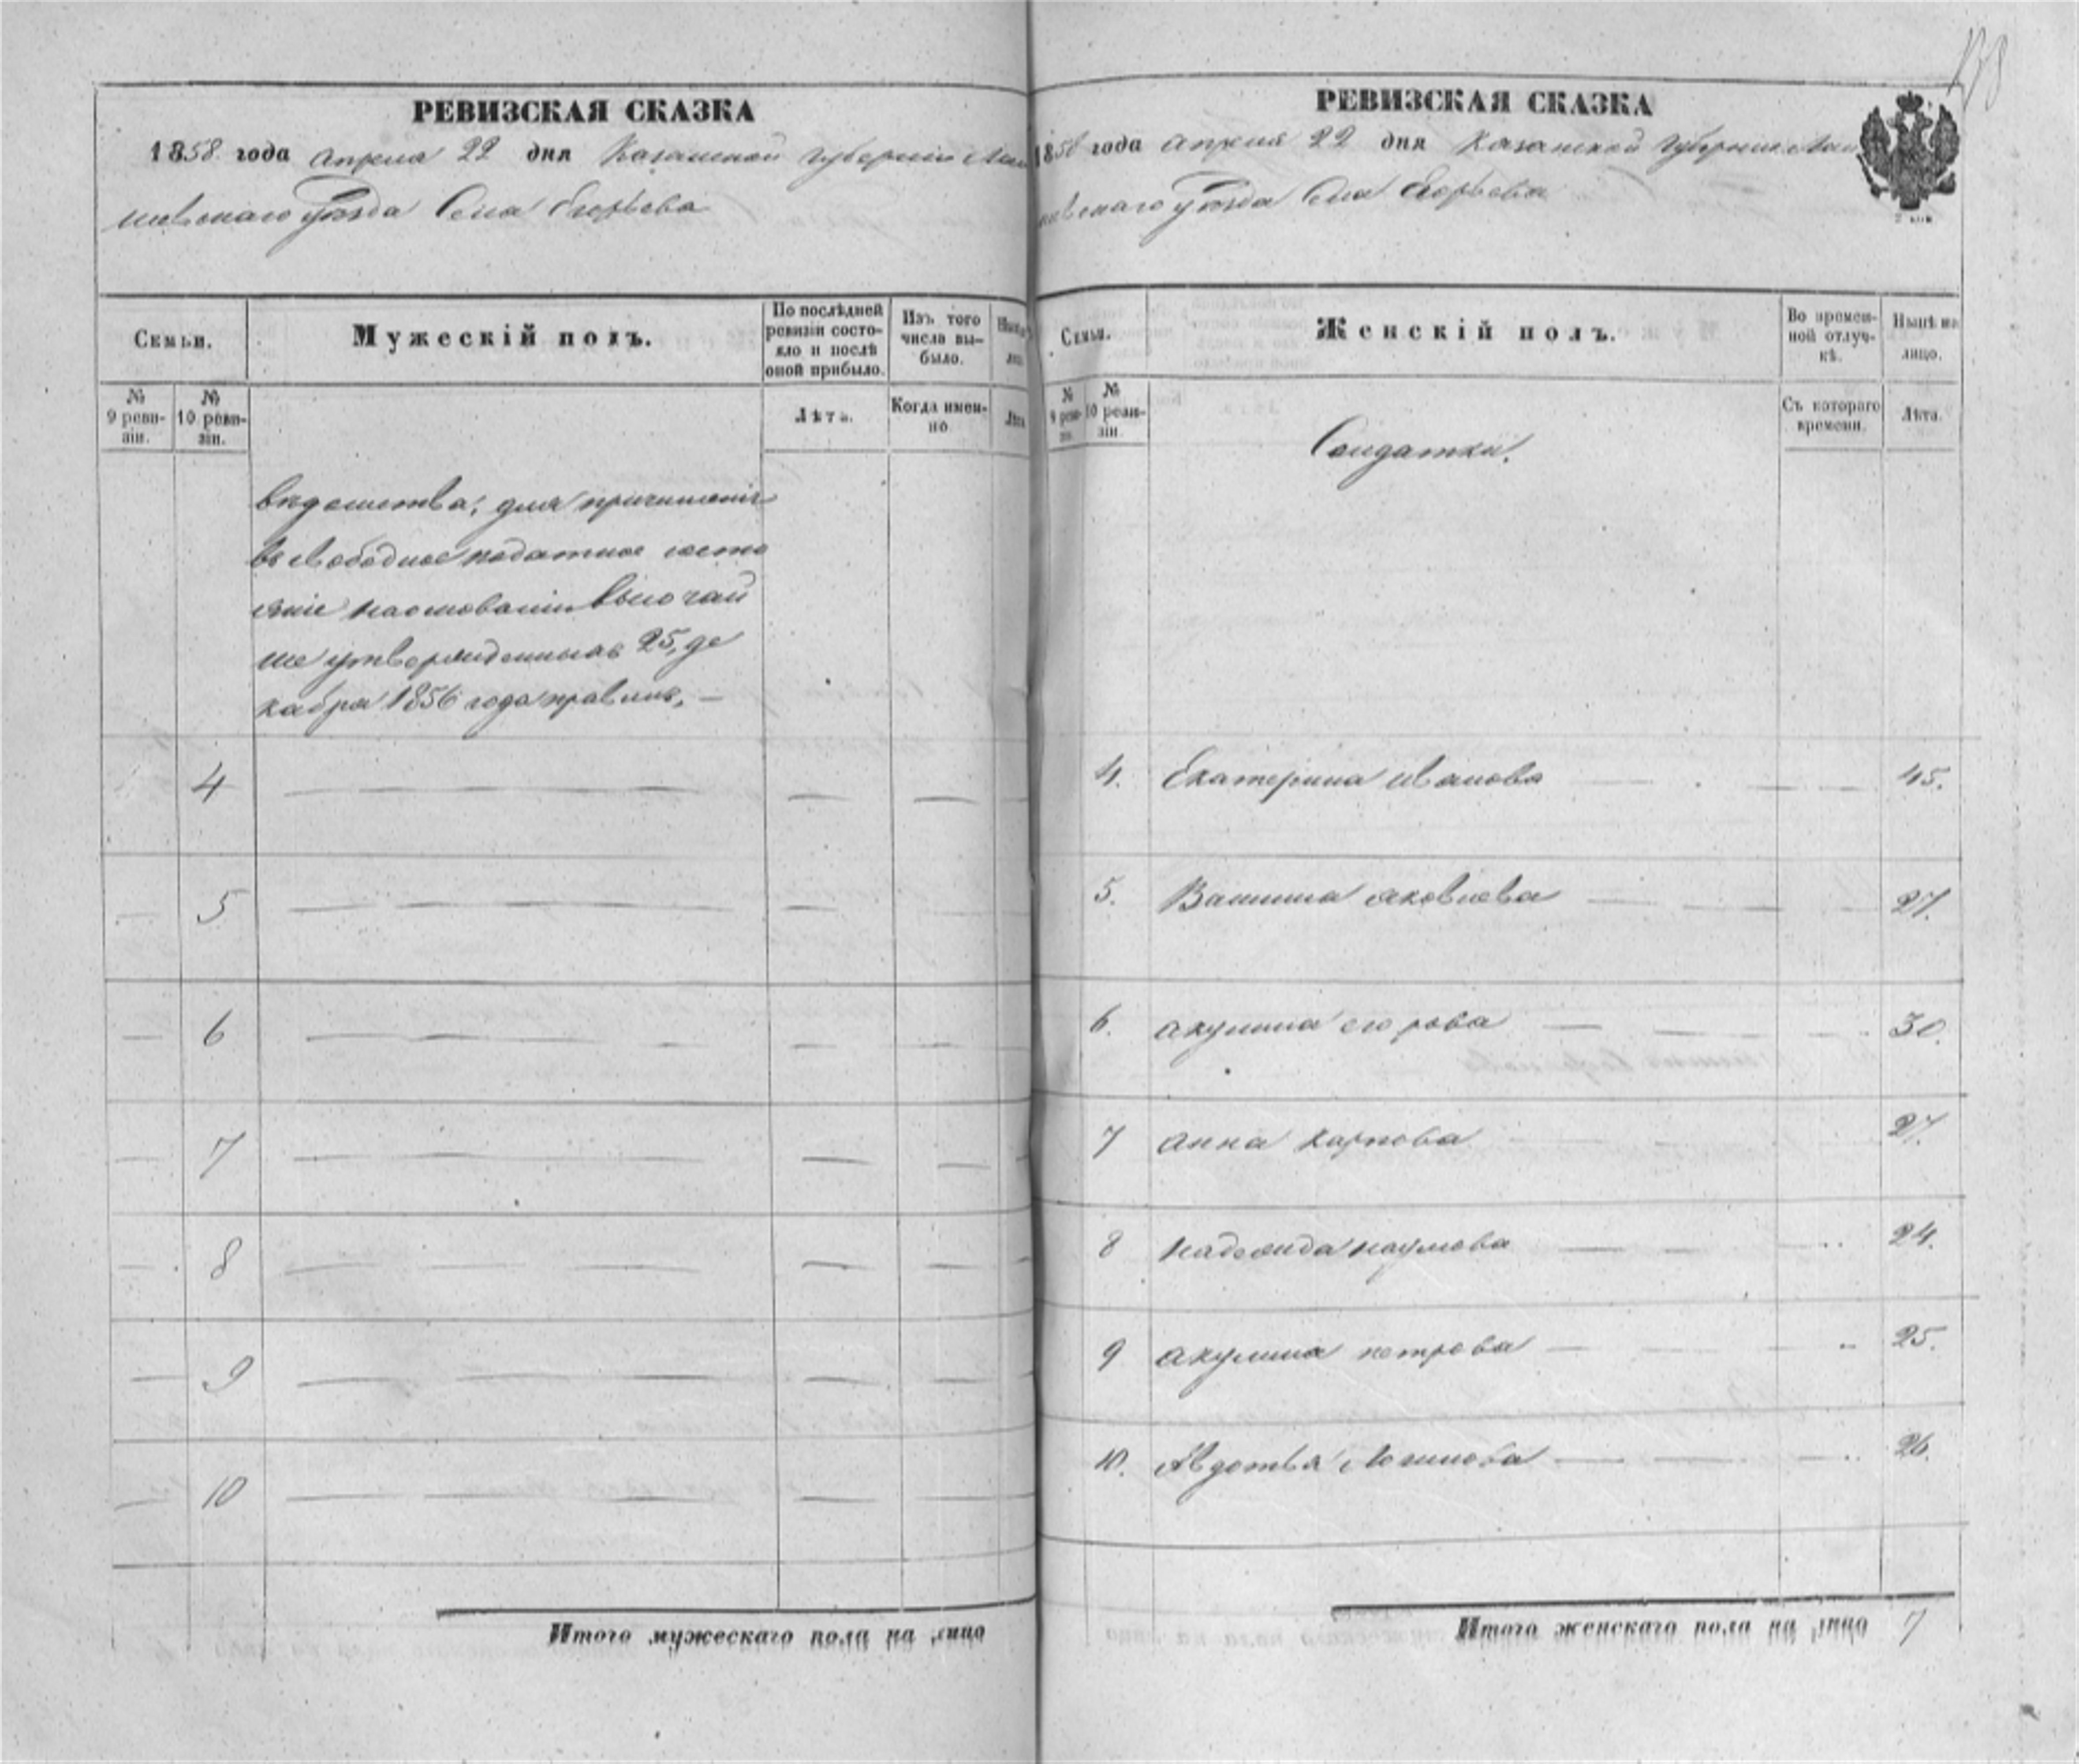 РЕВИЗСКАЯ СКАЗКА
1858 года Апреля 22 дня Казанской Губернии Лаи
шевскаго Уѣзда Села Егорьева
Семьи.
Мужескій полъ.
По послѣдней ревизіи состояло и послѣ оной прибыло.
Изъ того числа выбыло.
№ 9 ревизіи.
№ 10 ревизіи.
Лѣта.
Когда именно
Лѣта
вѣдомства, для причисленія
въ свободное податное состо
яніе на основаніи Высочай
ше утвержденныхъ 25, де
кабря 1856 года правилъ, —
4
5
6
7
8
9
10
Итого мужескаго пола на лицо
РЕВИЗСКАЯ СКАЗКА
1858 года Апреля 22 дня Казанской Губернии Лаи
шевскаго Уѣзда Села Егорьева
2 коп
Семьи.
Женскій полъ.
Во временной отлучкѣ.
Нынѣ на лицо.
№ 9 ревизіи.
№ 10 ревизіи
Съ котораго времени.
Лѣта.
Солдатки.
4. Екатерина Иванова 45.
5. Яковлева 27.
6. Акулина Егорова 30.
7 Анна Карпова 27.
8 Надежда Наумова 24.
9 Акулина Петрова 25.
10. Авдотья Логинова 26.
Итого женскаго пола на лицо 7